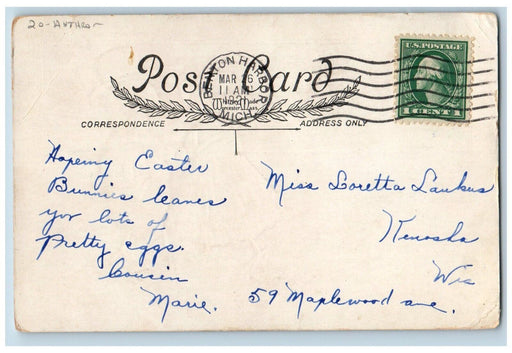 20-ANTHRO-
Post Card
BENTON HARBOR
MAR 26
11 AM
MICH.
U.S. POSTAGE
1 CENT 1
CORRESPONDENCE
ADDRESS ONLY
Hopeing Easter
Bunnies leanes
yor lots of
Pretty eggs.
Cousin
Marie.
Miss Loretta Laukus
Kenosha
Wis
59 Maplewood ave.